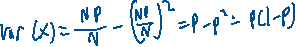 var (x) = \frac{NP}{N} - \left(\frac{NP}{N}\right)^2 = P - P^2 = P(1-P)